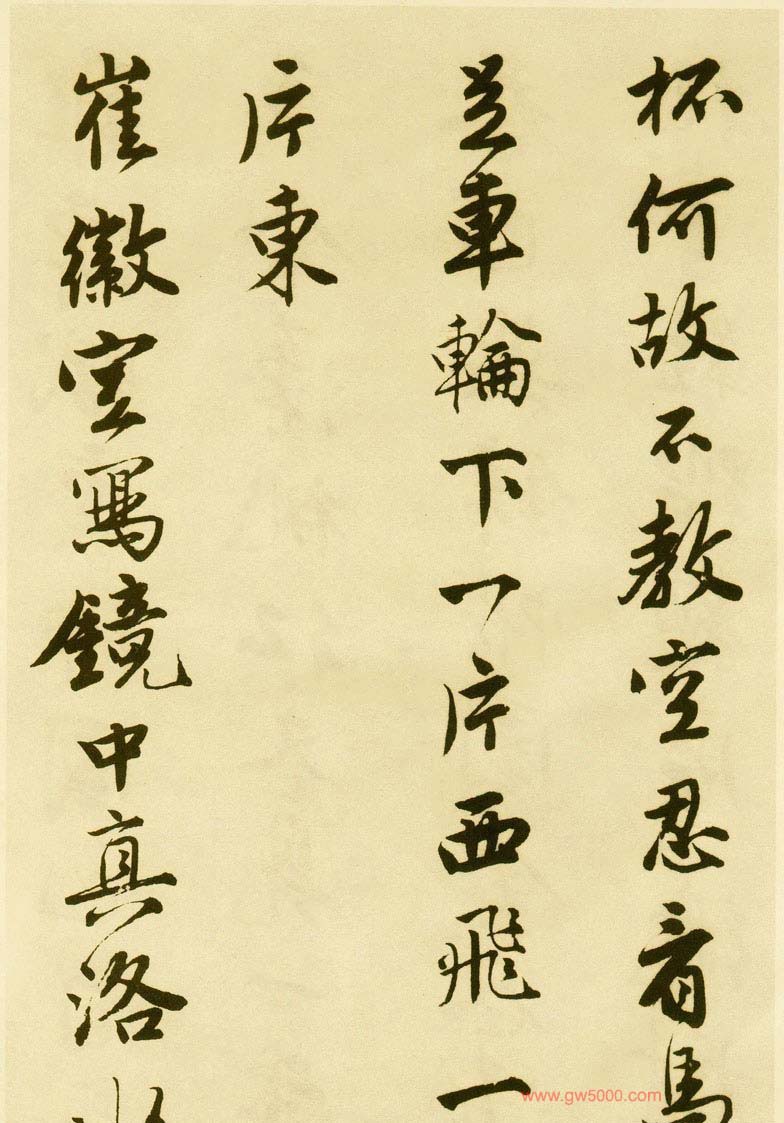 杯何故不教空忍看馬
足車輪下一片西飛一
片東
崔徽空寫鏡中真洛水
www.gw5000.com